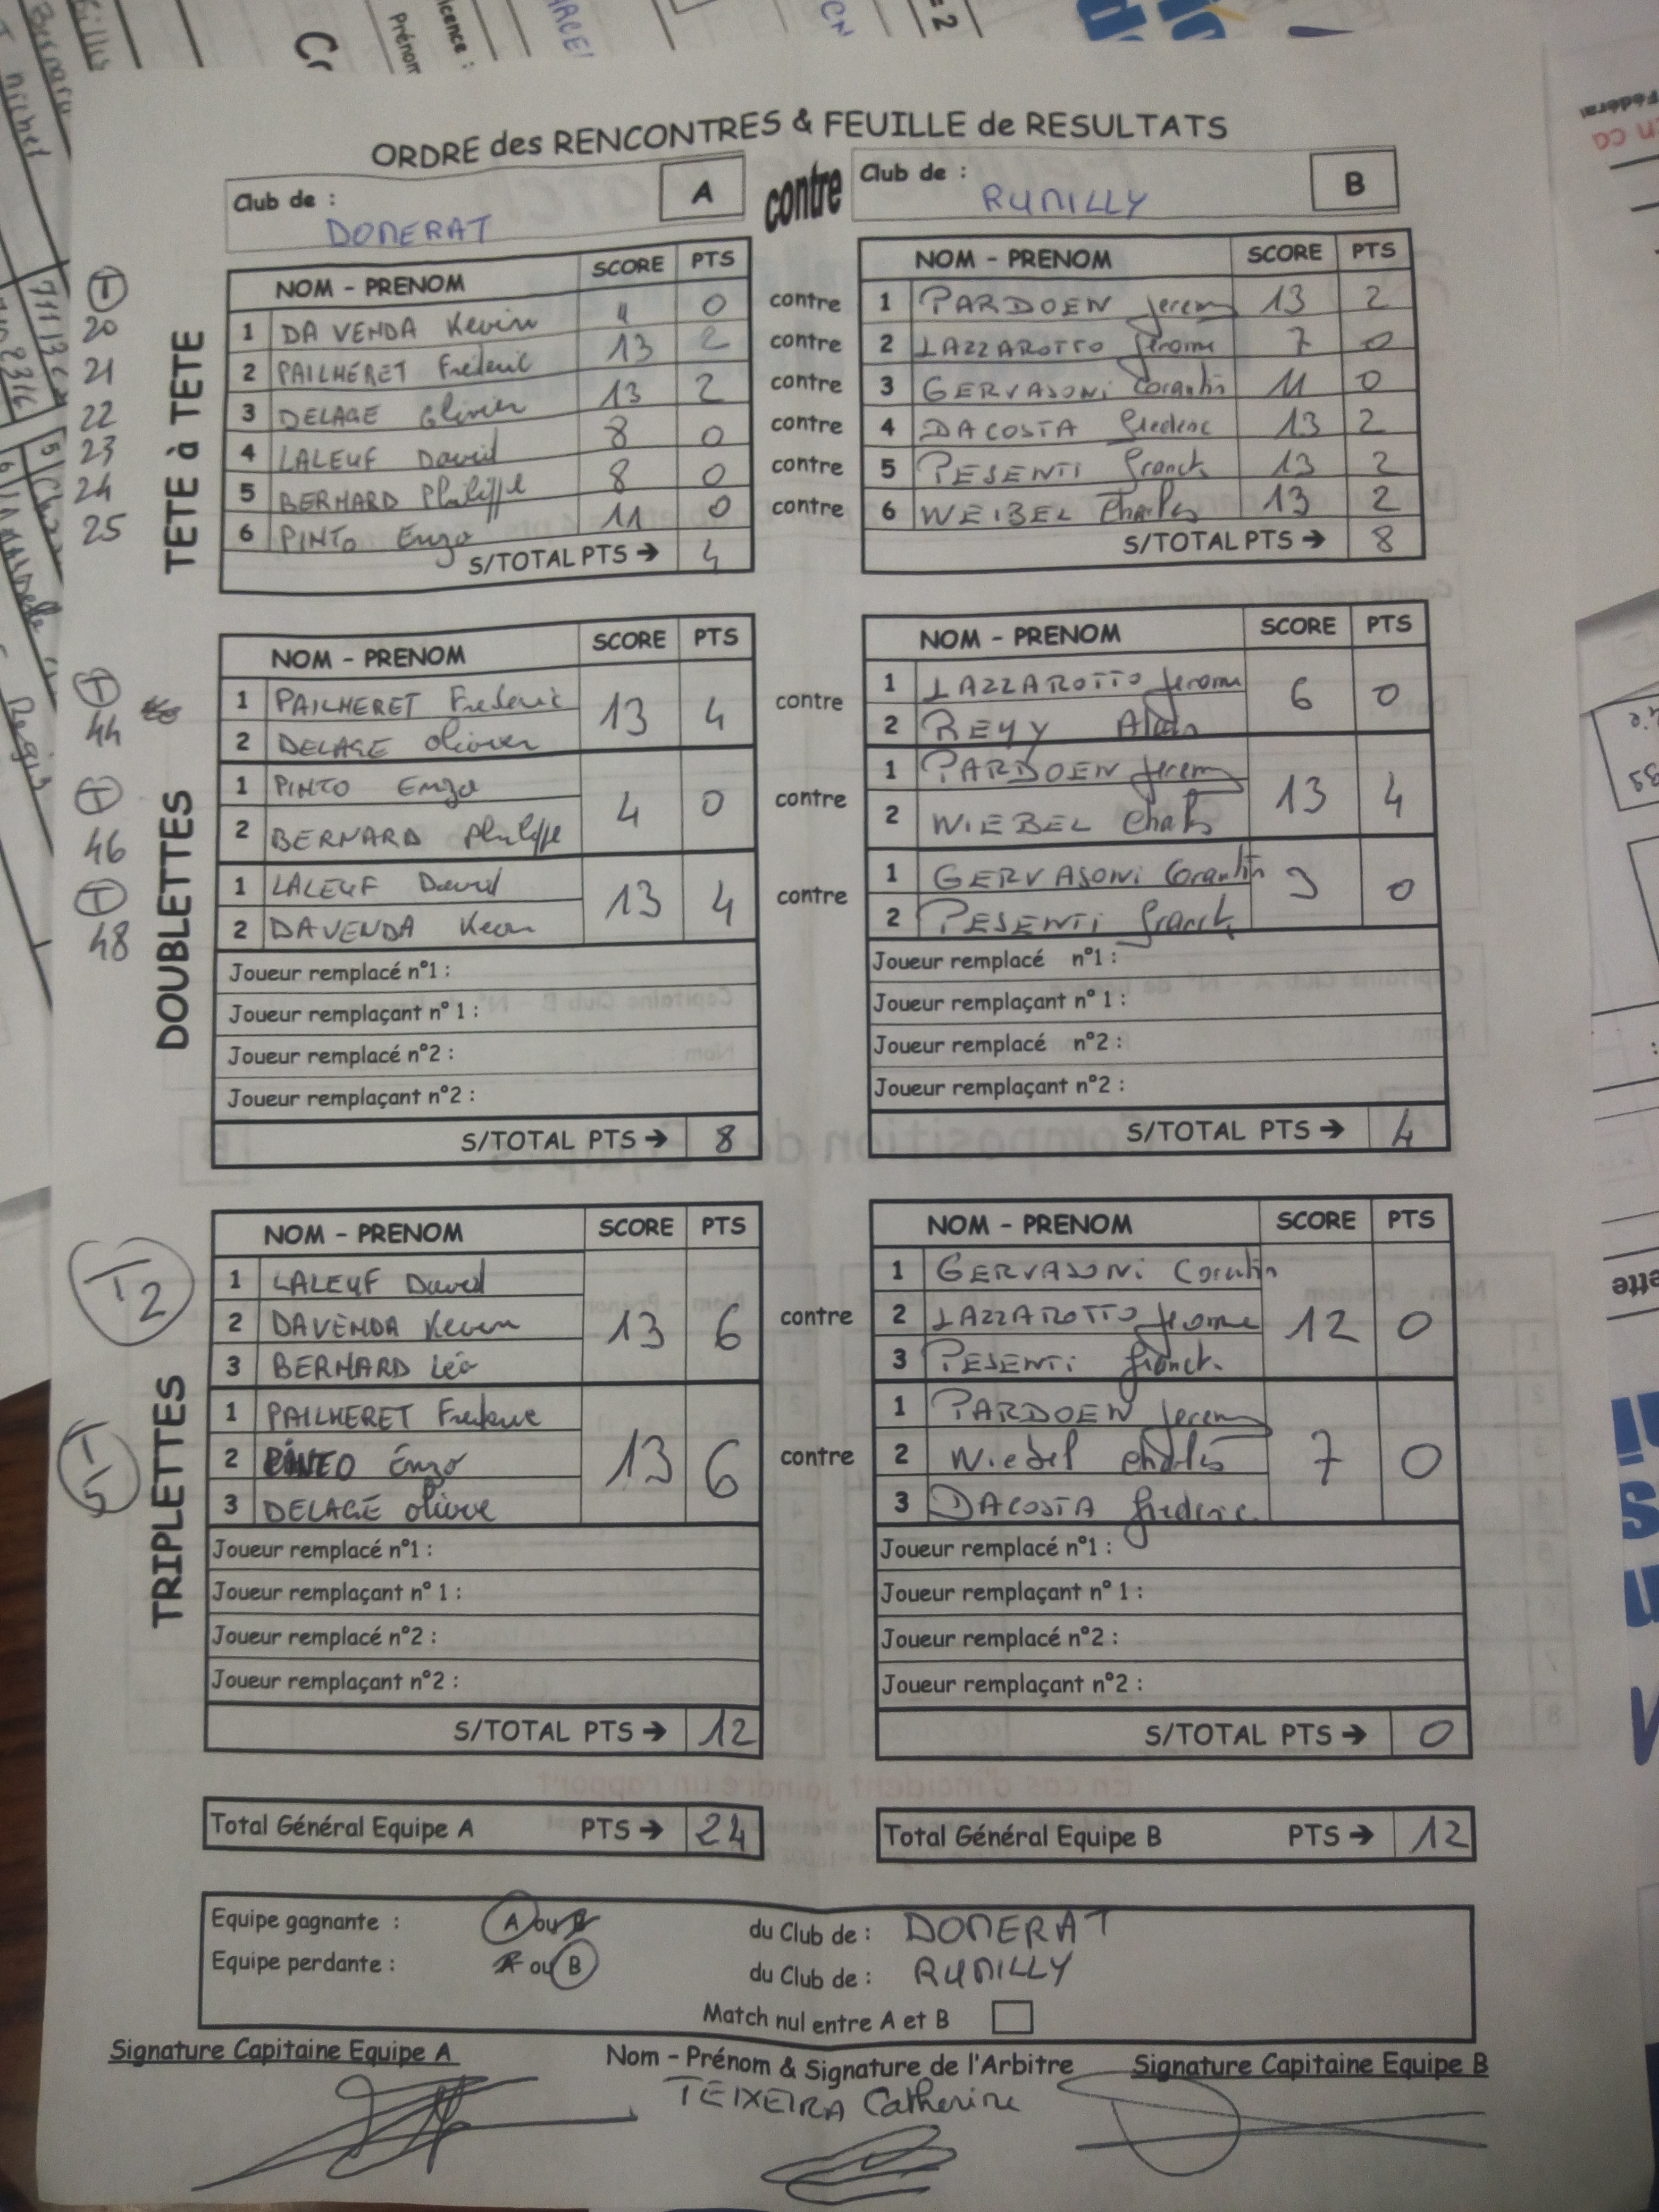 ORDRE des RENCONTRES & FEUILLE de RESULTATS
Club de : DOMERAT A contre Club de : RUMILLY B
TETE à TETE
T
20
21
22
23
24
25
NOM - PRENOM SCORE PTS NOM - PRENOM SCORE PTS
1 DA VENDA Kevin 4 0 contre 1 PARDOEN Jeremy 13 2
2 PAILHERET Frédéric 13 2 contre 2 LAZZAROTTO Jérome 7 0
3 DELAGE Olivier 13 2 contre 3 GERVASONI Corantin 11 0
4 LALEUF David 8 0 contre 4 DACOSTA Frederic 13 2
5 BERNARD Philippe 8 0 contre 5 PESENTI Franck 13 2
6 PINTO Enzo 11 0 contre 6 WEIBEL Charles 13 2
S/TOTAL PTS → 4 S/TOTAL PTS → 8
DOUBLETTES
T
44
T
46
T
48
NOM - PRENOM SCORE PTS NOM - PRENOM SCORE PTS
1 PAILHERET Frederic 13 4 contre 1 LAZZAROTTO Jerome 6 0
2 DELAGE Olivier 2 REMY Alain
1 PINTO Enzo 4 0 contre 1 PARDOEN Jeremy 13 4
2 BERNARD Philippe 2 WIEBEL Charles
1 LALEUF David 13 4 contre 1 GERVASONI Corantin 3 0
2 DAVENDA Kevin 2 PESENTI Franck
Joueur remplacé n°1 : Joueur remplacé n°1 :
Joueur remplaçant n° 1 : Joueur remplaçant n° 1 :
Joueur remplacé n°2 : Joueur remplacé n°2 :
Joueur remplaçant n°2 : Joueur remplaçant n°2 :
S/TOTAL PTS → 8 S/TOTAL PTS → 4
TRIPLETTES
T2
T5
NOM - PRENOM SCORE PTS NOM - PRENOM SCORE PTS
1 LALEUF David 13 6 contre 1 GERVASONI Corentin 12 0
2 DAVENDA Keven 2 LAZZAROTTO Jerome
3 BERNARD Léo 3 PESENTI Franck
1 PAILHERET Frederic 13 6 contre 1 PARDOEN Jeremy 7 0
2 PINTO Enzo 2 Wiebel Charles
3 DELAGE Olivier 3 DACOSTA Frederic
Joueur remplacé n°1 : Joueur remplacé n°1 :
Joueur remplaçant n° 1 : Joueur remplaçant n° 1 :
Joueur remplacé n°2 : Joueur remplacé n°2 :
Joueur remplaçant n°2 : Joueur remplaçant n°2 :
S/TOTAL PTS → 12 S/TOTAL PTS → 0
Total Général Equipe A PTS → 24 Total Général Equipe B PTS → 12
Equipe gagnante : A ou B du Club de : DOMERAT
Equipe perdante : A ou B du Club de : RUMILLY
Match nul entre A et B
Signature Capitaine Equipe A Nom - Prénom & Signature de l'Arbitre Signature Capitaine Equipe B
TEIXEIRA Catherine